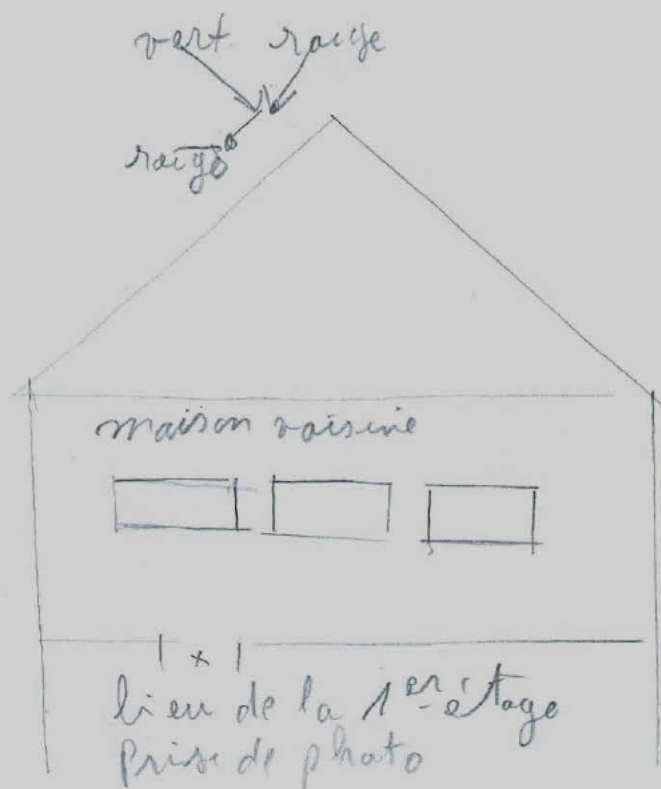 vert rouge
rouge
maison voisine
x
lieu de la 1er étage
prise de photo